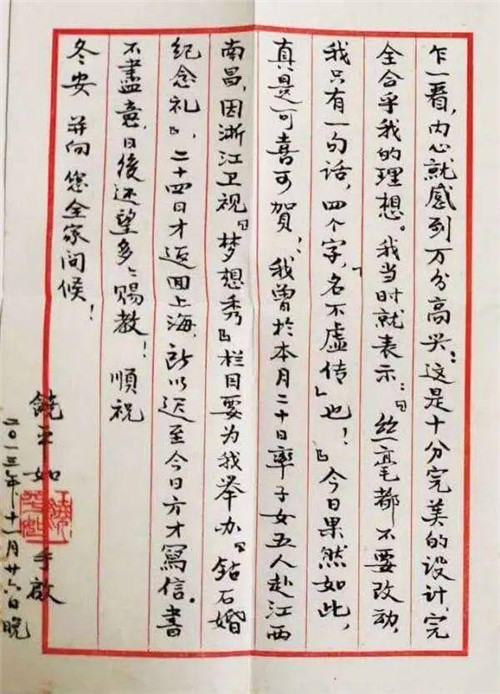 乍一看,内心就感到万分高兴:这是十分完美的设计完
全合乎我的理想。我当时就表示:『丝毫都不要改动,
我只有一句话,四个字,「名不虚传」也!』今日果然如此,
真是可喜可賀,我曾於本月二十日率子女五人赴江西
南昌,因浙江卫视『梦想秀』栏目要为我举办『钻石婚
纪念礼』,二十四日才返回上海,所以迟至今日方才寫信。書
不盡意,日後还望多々赐教!順祝
冬安 并向您全家问候!
饒平如 手啟
二〇一三年十一月廿六日晚